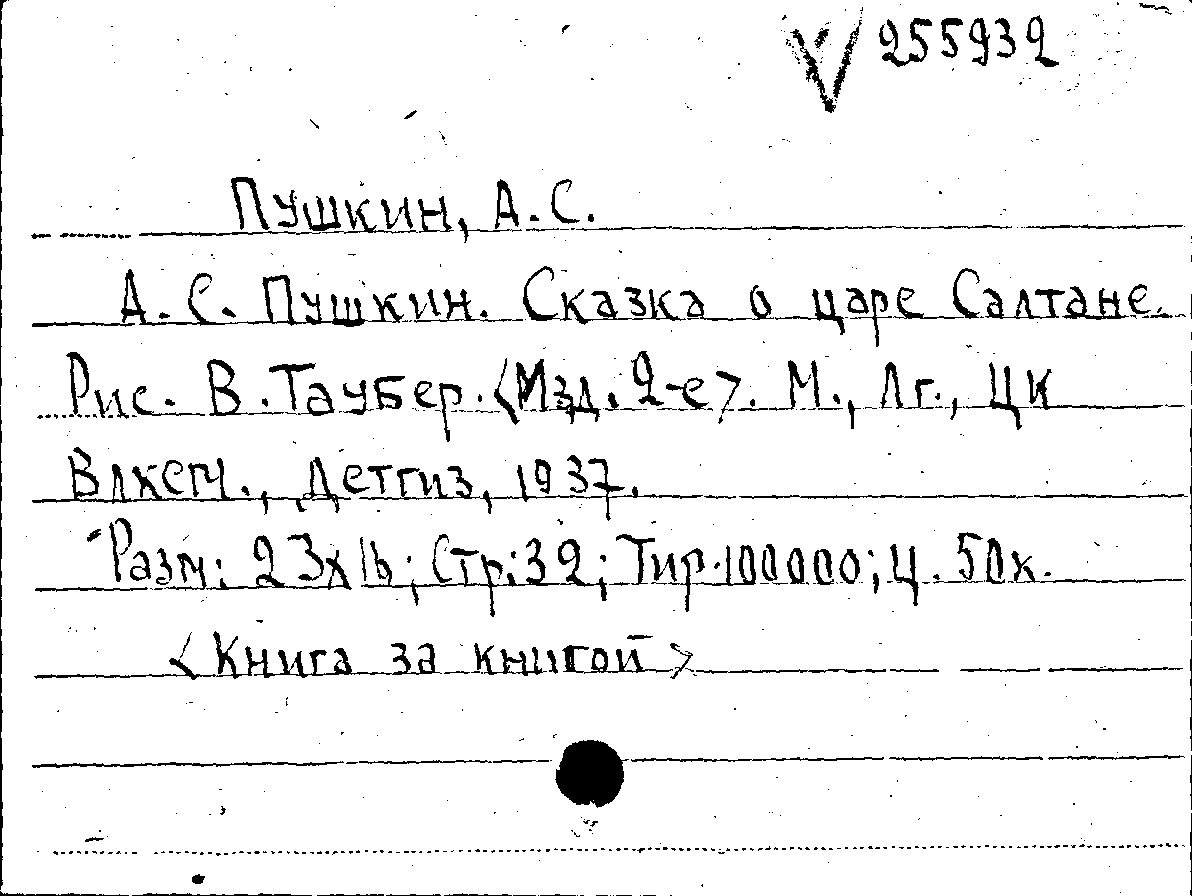 V 255932
Пушкин, А.С.
А.С. Пушкин. Сказка о царе Салтане.
Рис. В. Таубер. <Изд. 2-е>. М., Лг., ЦК
ВЛКСМ., Детгиз, 1937.
Разм: 23х16; Стр:32; Тир.100000; Ц. 50к.
<Книга за книгой>